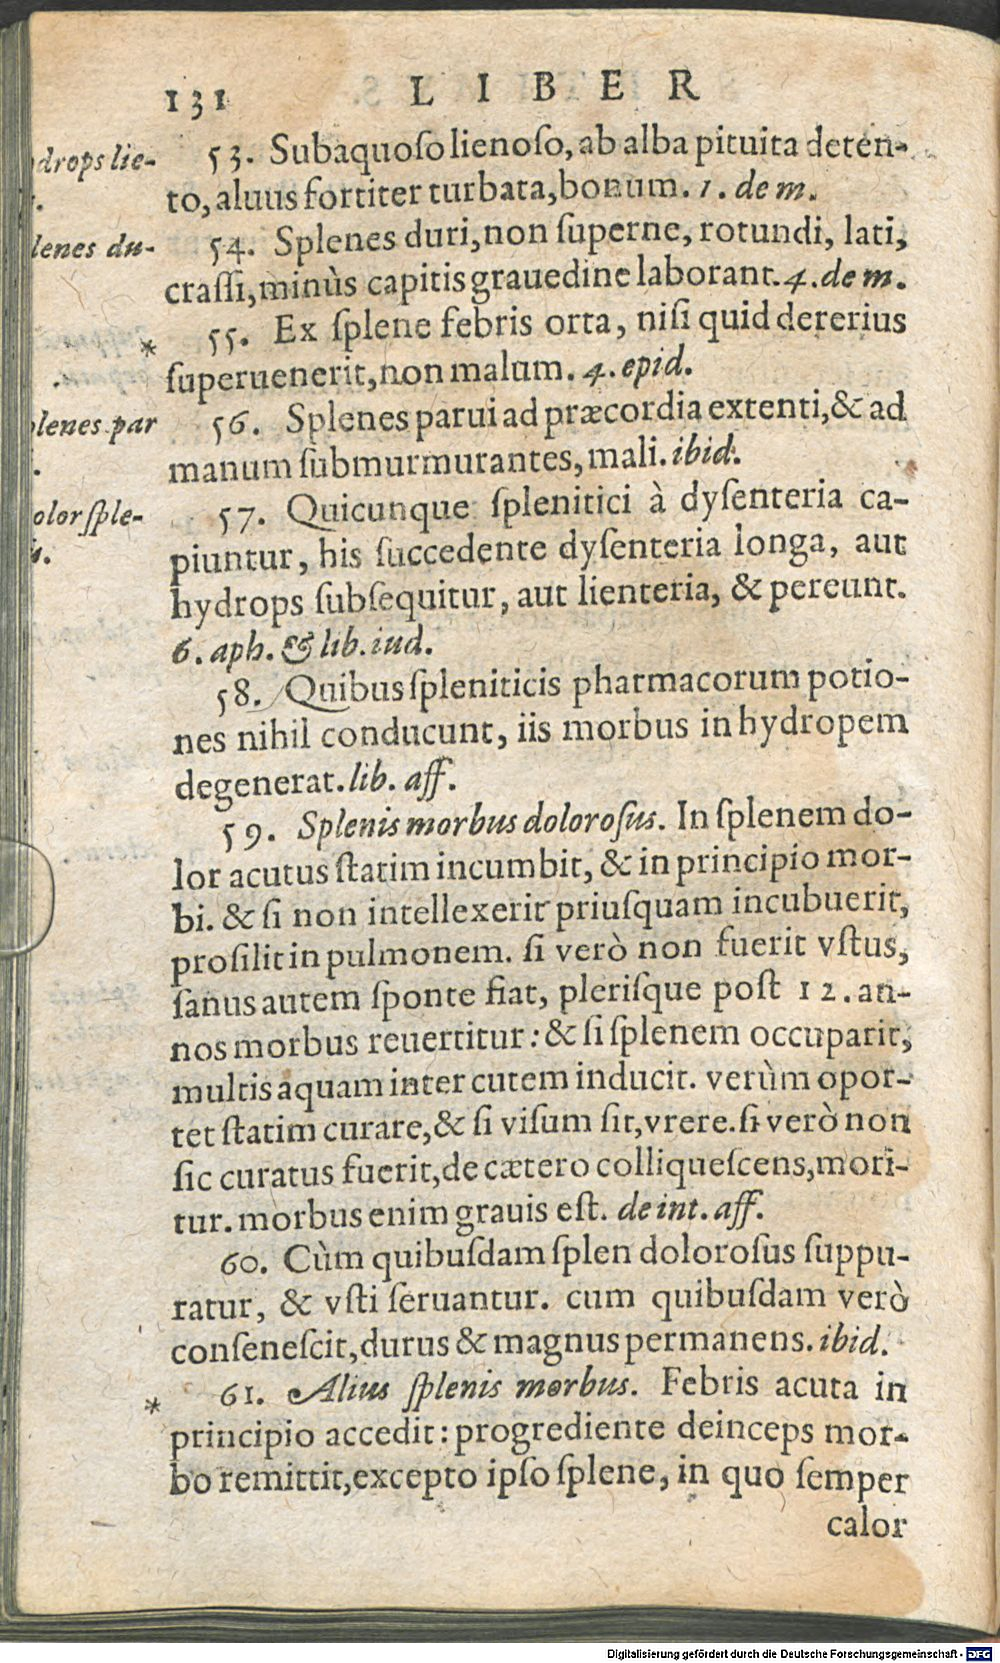 131 LIBER
drops lie-
53. Subaquoſo lienoſo, ab alba pituita deten-
to, aluus fortiter turbata, bonum. 1. de m.
lenes du-
54. Splenes duri, non ſuperne, rotundi, lati,
craſſi, minùs capitis grauedine laborant. 4. de m.
* 55. Ex ſplene febris orta, niſi quid deterius
ſuperuenerit, non malum. 4. epid.
lenes par
56. Splenes parui ad præcordia extenti, & ad
manum ſubmurmurantes, mali. ibid.
olor ſple-
57. Quicunque ſplenitici à dyſenteria ca-
piuntur, his ſuccedente dyſenteria longa, aut
hydrops ſubſequitur, aut lienteria, & pereunt.
6. aph. & lib. iud.
58. Quibus ſpleniticis pharmacorum potio-
nes nihil conducunt, iis morbus in hydropem
degenerat. lib. aff.
59. Splenis morbus doloroſus. In ſplenem do-
lor acutus ſtatim incumbit, & in principio mor-
bi. & ſi non intellexerit priuſquam incubuerit,
proſilit in pulmonem. ſi verò non fuerit vſtus,
ſanus autem ſponte fiat, pleriſque poſt 12. an-
nos morbus reuertitur: & ſi ſplenem occuparit,
multis aquam inter cutem inducit. verùm opor-
tet ſtatim curare, & ſi viſum ſit, vrere. ſi verò non
ſic curatus fuerit, de cætero colliqueſcens, mori-
tur. morbus enim grauis eſt. de int. aff.
60. Cùm quibuſdam ſplen doloroſus ſuppu-
ratur, & vſti ſeruantur. cum quibuſdam verò
conſeneſcit, durus & magnus permanens. ibid.
* 61. Alius ſplenis morbus. Febris acuta in
principio accedit: progrediente deinceps mor-
bo remittit, excepto ipſo ſplene, in quo ſemper
calor
Digitalisierung gefördert durch die Deutsche Forschungsgemeinschaft - DFG